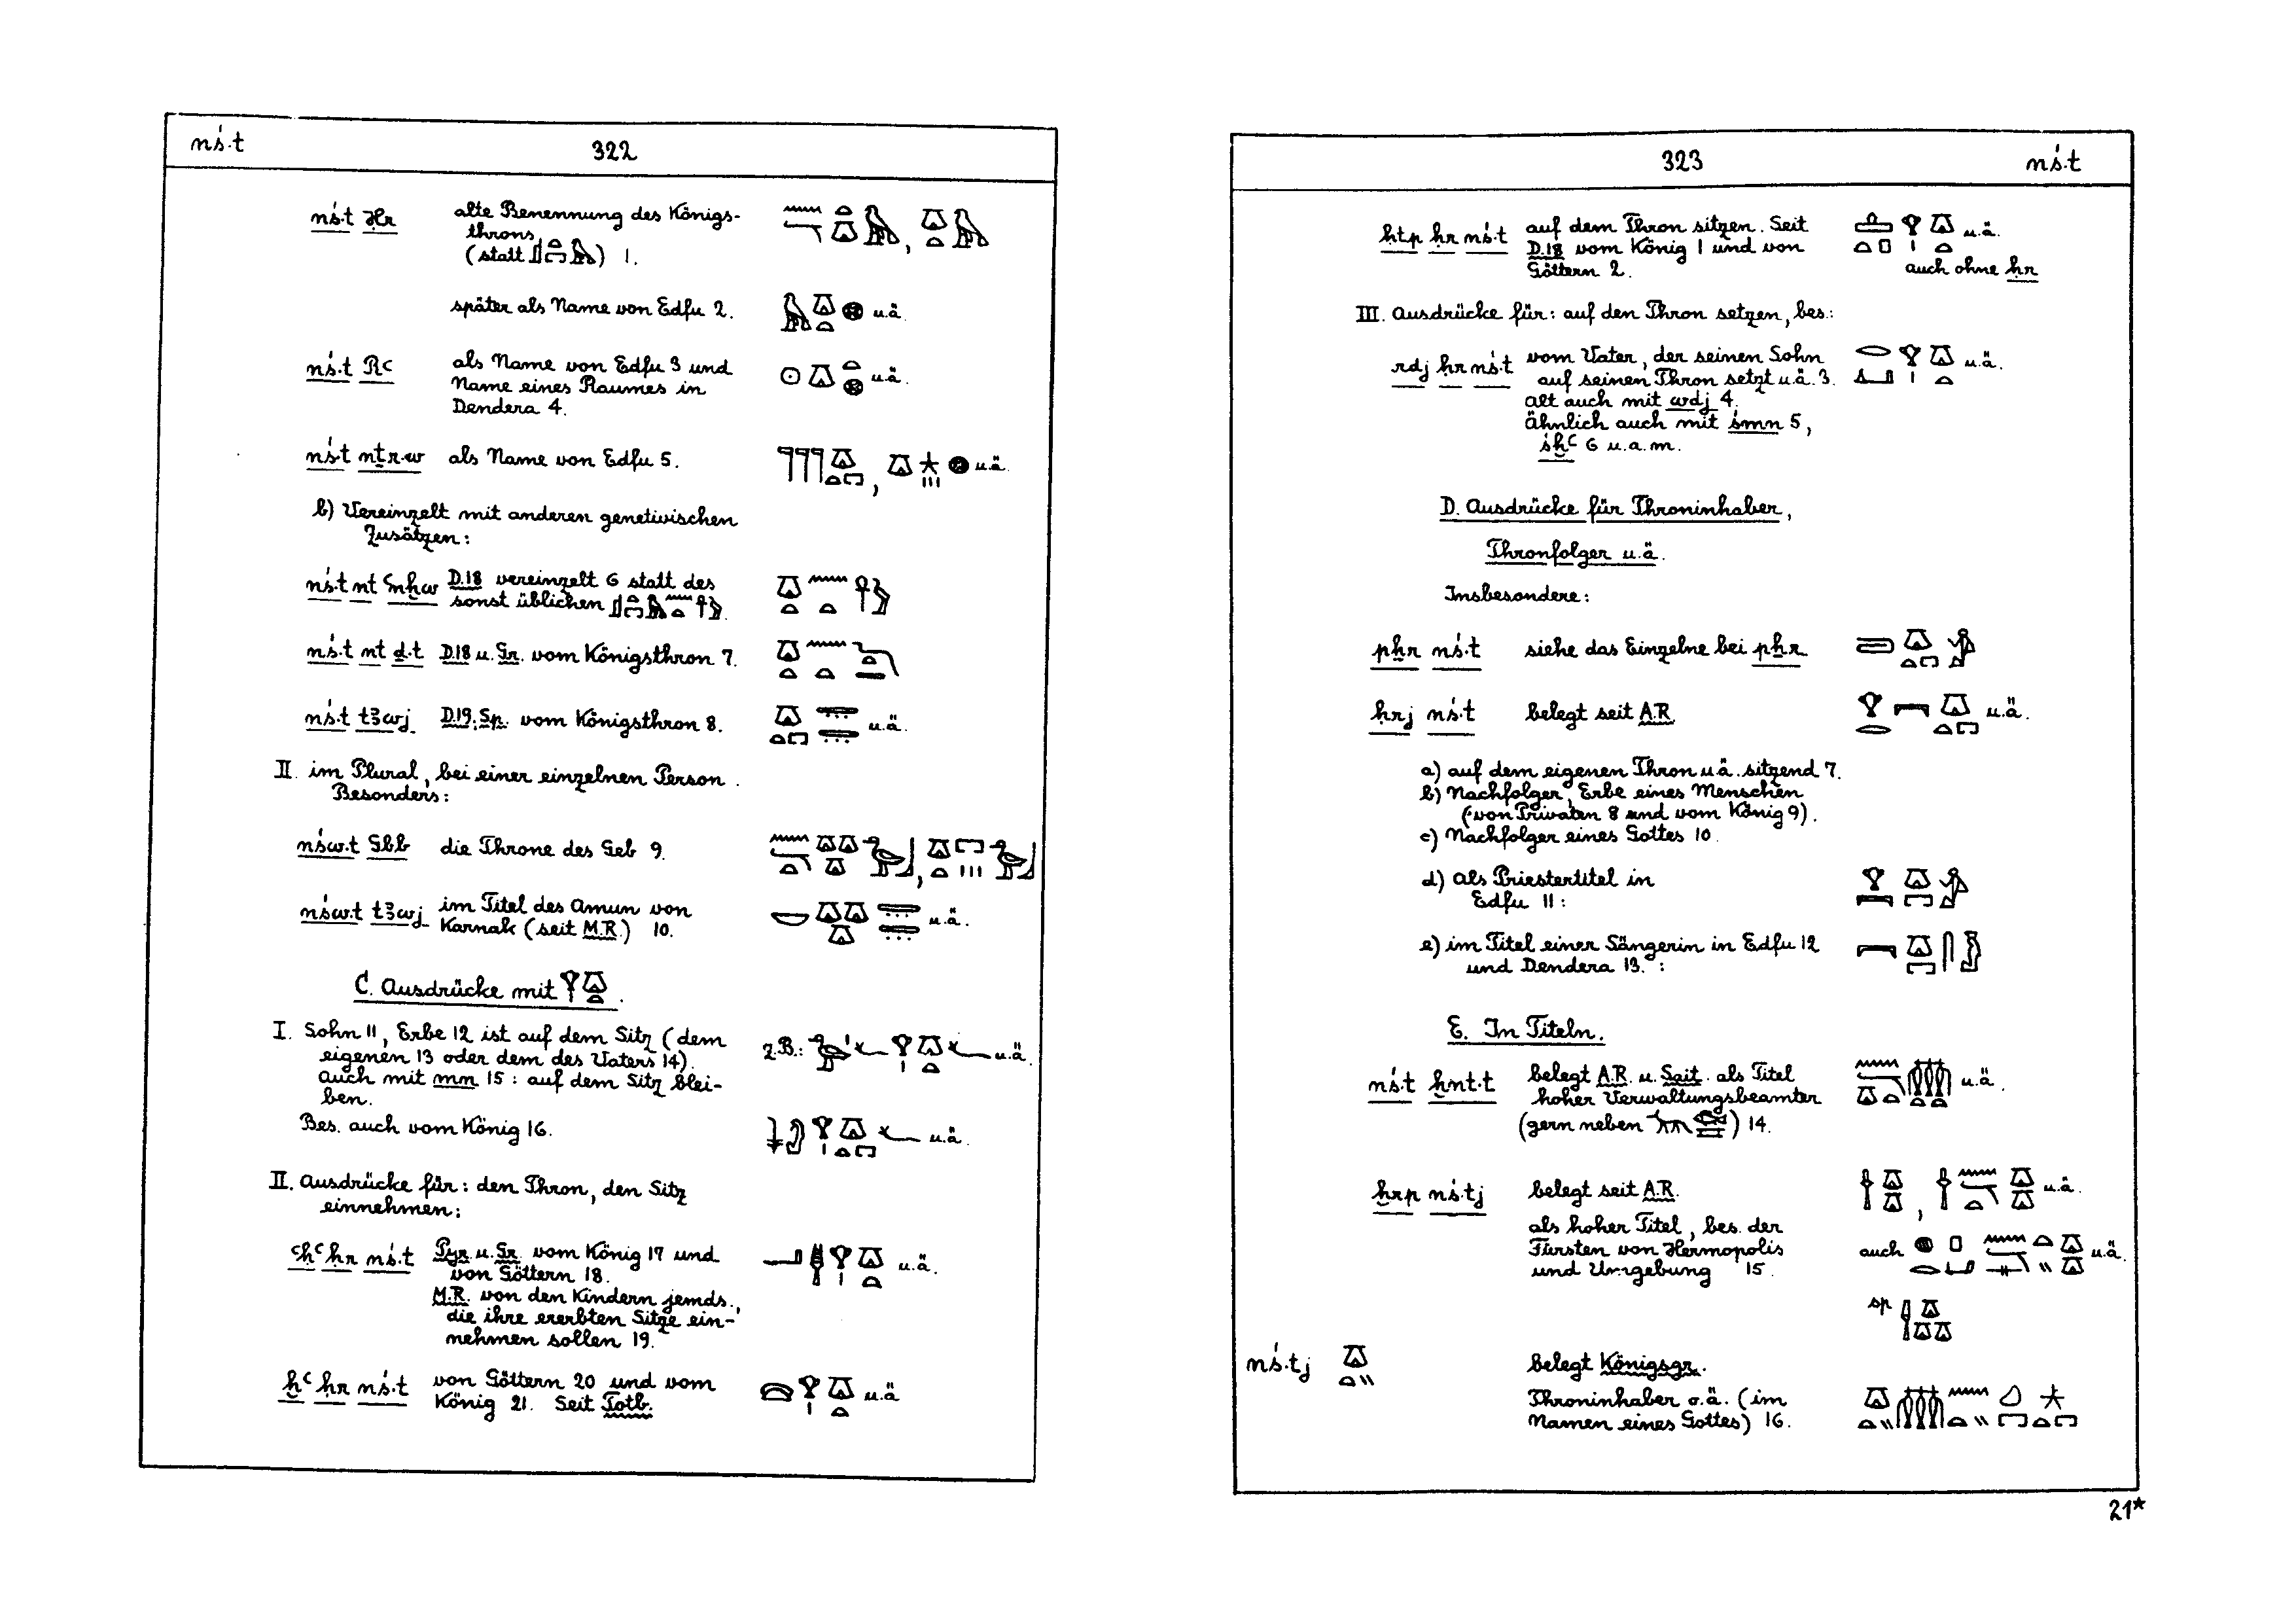 nś.t 322
nś.t Ḥr alte Benennung des Königs-
throns
(statt 𓊨𓏏𓉐𓅃) 1.
später als Name von Edfu 2. u.ä.
nś.t Rʿ als Name von Edfu 3 und
Name eines Raumes in u.ä.
Dendera 4.
nś.t nṯr.w als Name von Edfu 5. u.ä.
b) Vereinzelt mit anderen genetivischen
Zusätzen:
nś.t nt ʿnḫw D.18 vereinzelt 6 statt des
sonst üblichen
nś.t nt ḏ.t D.18 u. Gr. vom Königsthron 7.
nś.t tꜣwj D.19. Sp. vom Königsthron 8. u.ä.
II. im Plural, bei einer einzelnen Person.
Besonders:
nśw.t Gbb die Throne des Geb 9.
nśw.t tꜣwj im Titel des Amun von
Karnak (seit M.R.) 10. u.ä.
C. Ausdrücke mit 𓁷𓏏.
I. Sohn 11, Erbe 12 ist auf dem Sitz (dem
eigenen 13 oder dem des Vaters 14). z.B.: u.ä.
Auch mit mn 15: auf dem Sitz blei-
ben.
Bes. auch vom König 16. u.ä.
II. Ausdrücke für: den Thron, den Sitz
einnehmen:
ʿḥʿ ḥr nś.t Pyr. u. Gr. vom König 17 und
von Göttern 18. u.ä.
M.R. von den Kindern jemds.,
die ihre ererbten Sitze ein-
nehmen sollen 19.
ḫʿ ḥr nś.t von Göttern 20 und vom
König 21. Seit Totb. u.ä.
323 nś.t
ḥtp ḥr nś.t auf dem Thron sitzen. Seit u.ä.
D.18 vom König 1 und von
Göttern 2. auch ohne ḥr
III. Ausdrücke für: auf den Thron setzen, bes.:
rdj ḥr nś.t vom Vater, der seinen Sohn u.ä.
auf seinen Thron setzt u.ä. 3.
Alt auch mit wdj 4.
Ähnlich auch mit śmn 5,
śḫʿ 6 u.a.m.
D. Ausdrücke für Throninhaber,
Thronfolger u.ä.
Insbesondere:
pẖr nś.t siehe das Einzelne bei pẖr.
ḥrj nś.t belegt seit A.R. u.ä.
a) auf dem eigenen Thron u.ä. sitzend 7.
b) Nachfolger, Erbe eines Menschen
(von Privaten 8 und vom König 9).
c) Nachfolger eines Gottes 10.
d) als Priestertitel in
Edfu 11:
e) im Titel einer Sängerin in Edfu 12
und Dendera 13.:
E. In Titeln.
nś.t ḫnt.t belegt A.R. u. Sait. als Titel
hoher Verwaltungsbeamter u.ä.
(gern neben ) 14.
ḫrp nś.tj belegt seit A.R. u.ä.
als hoher Titel, bes. der
Fürsten von Hermopolis auch u.ä.
und Umgebung 15.
sp
nś.tj belegt Königsgr.
Throninhaber o.ä. (im
Namen eines Gottes) 16.
21*